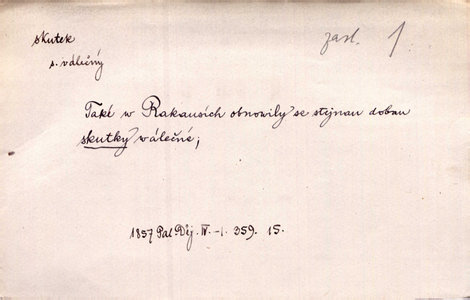 skutek
zast. 1
s. válečný
Také w Rakausích obnowily se stejnau dobau
skutky wálečné;
1857 Pal Děj. IV. -1. 359. 15.